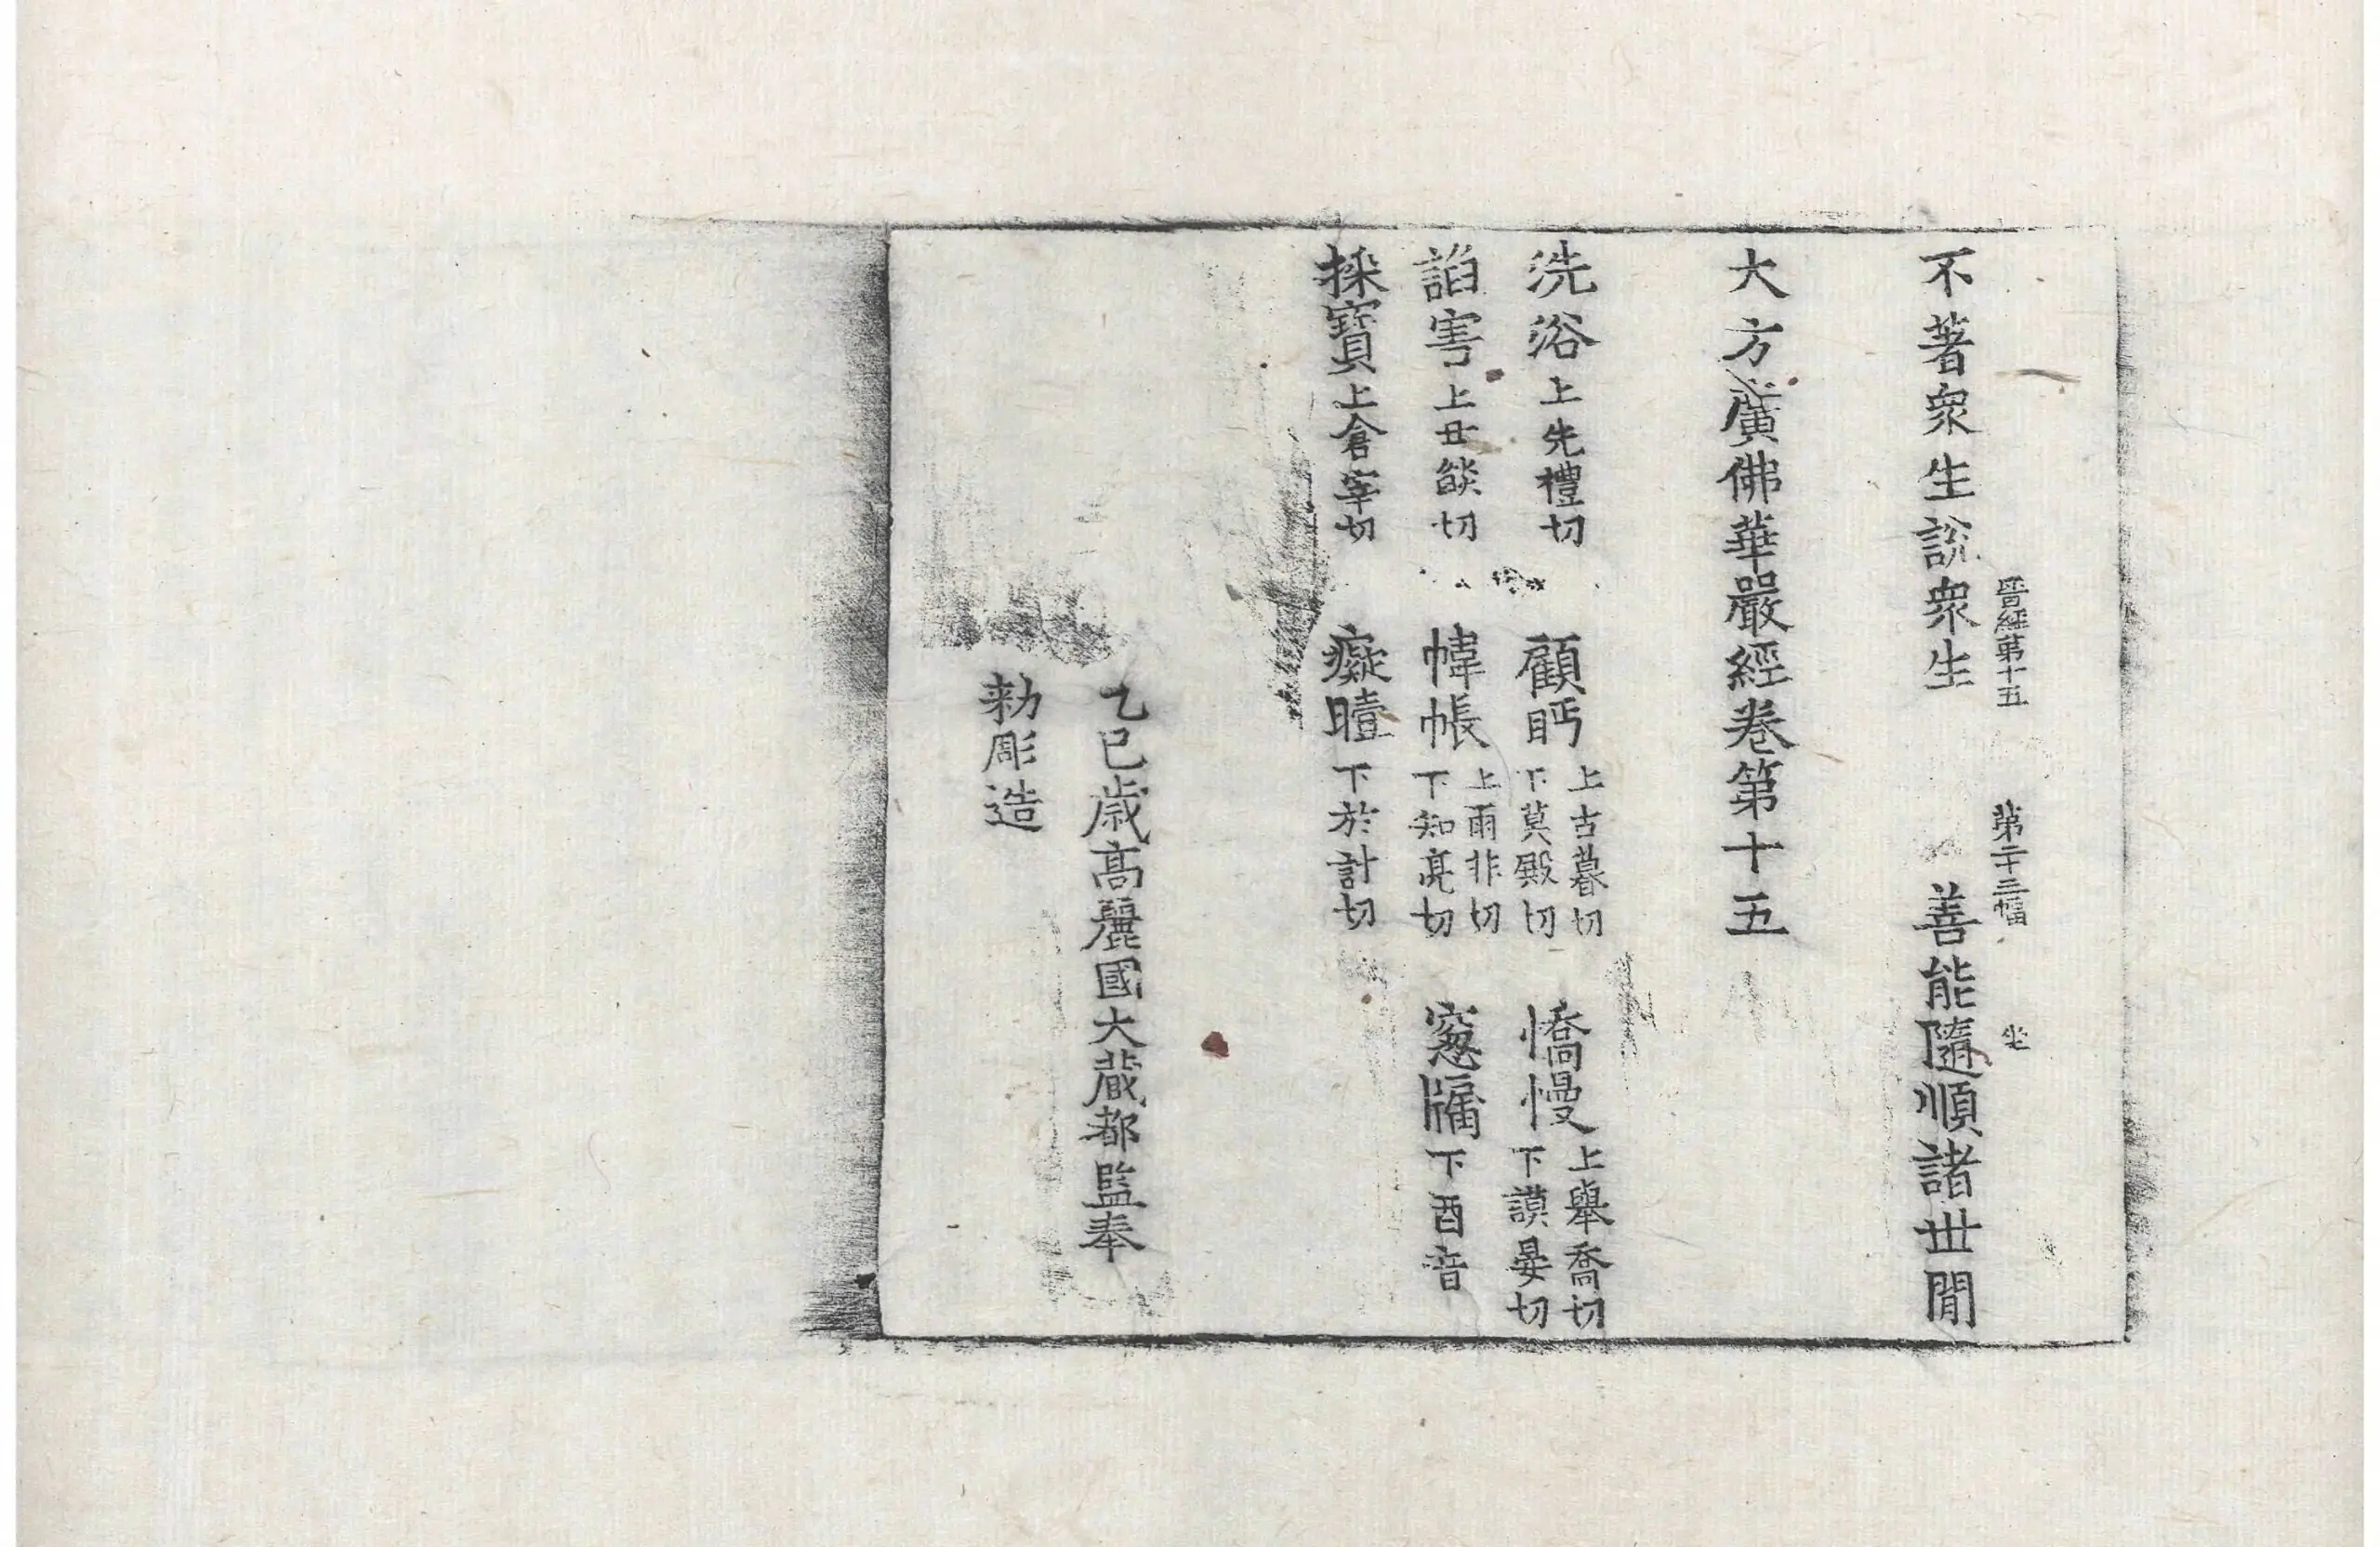 晉經第十五　第二十三幅　坐
不著衆生說衆生　善能隨順諸世間
大方廣佛華嚴經卷第十五
洗浴上先禮切　顧眄上古暮切下莫殿切　憍慢上舉喬切下謨晏切
諂害上丑琰切　幃帳上雨非切下知亮切　窓牖下酉音
採寶上倉宰切　癡曀下於計切
乙巳歳高麗國大藏都監奉
勅彫造